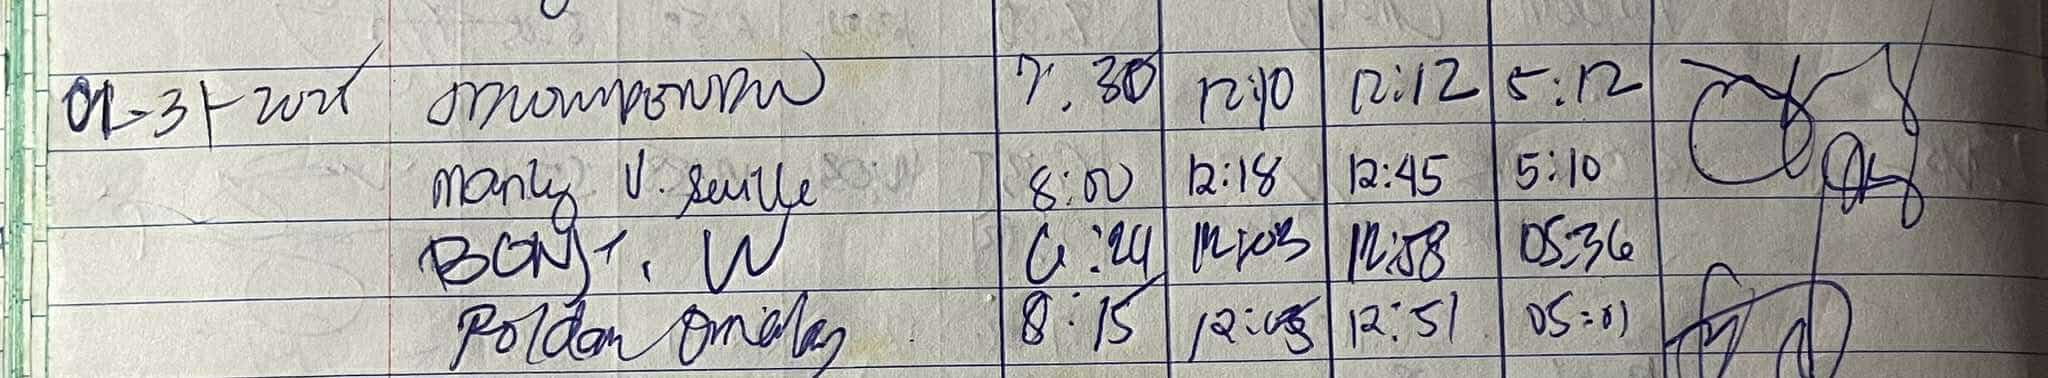 01-31-2025 7:30 12:10 12:12 5:12
Manly V. Seville 8:00 12:18 12:45 5:10
BONJ. W 6:24 12:03 12:58 05:36
Roldan 8:15 12:05 12:51 05:01